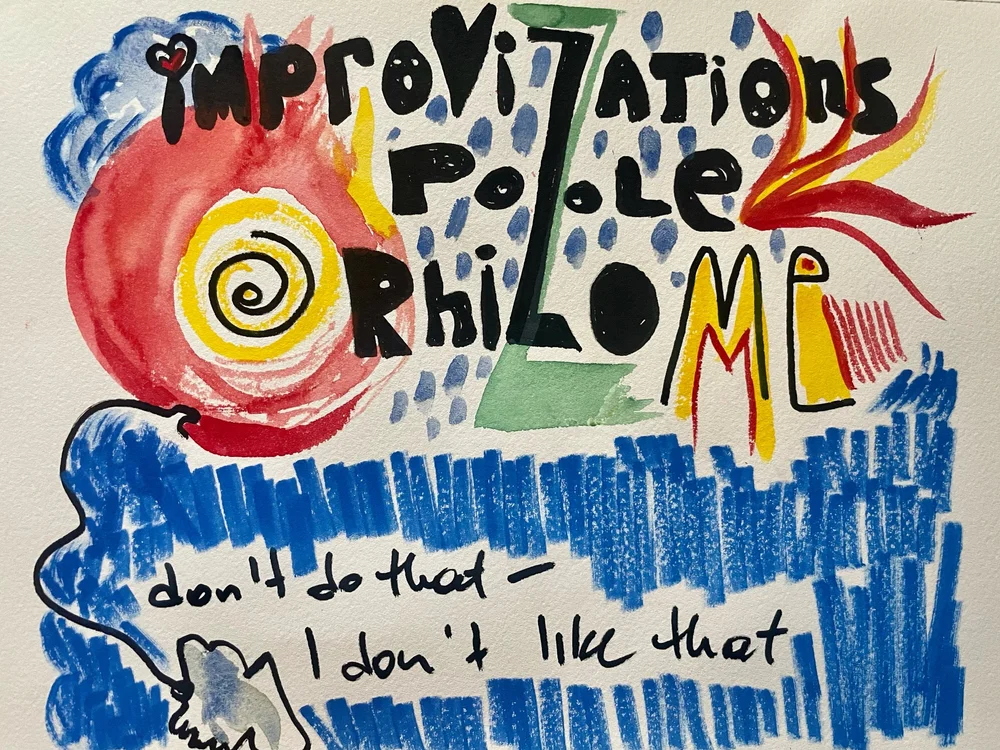 improviZations
PoZoLe
RhiZOMe
don't do that —
I don't like that